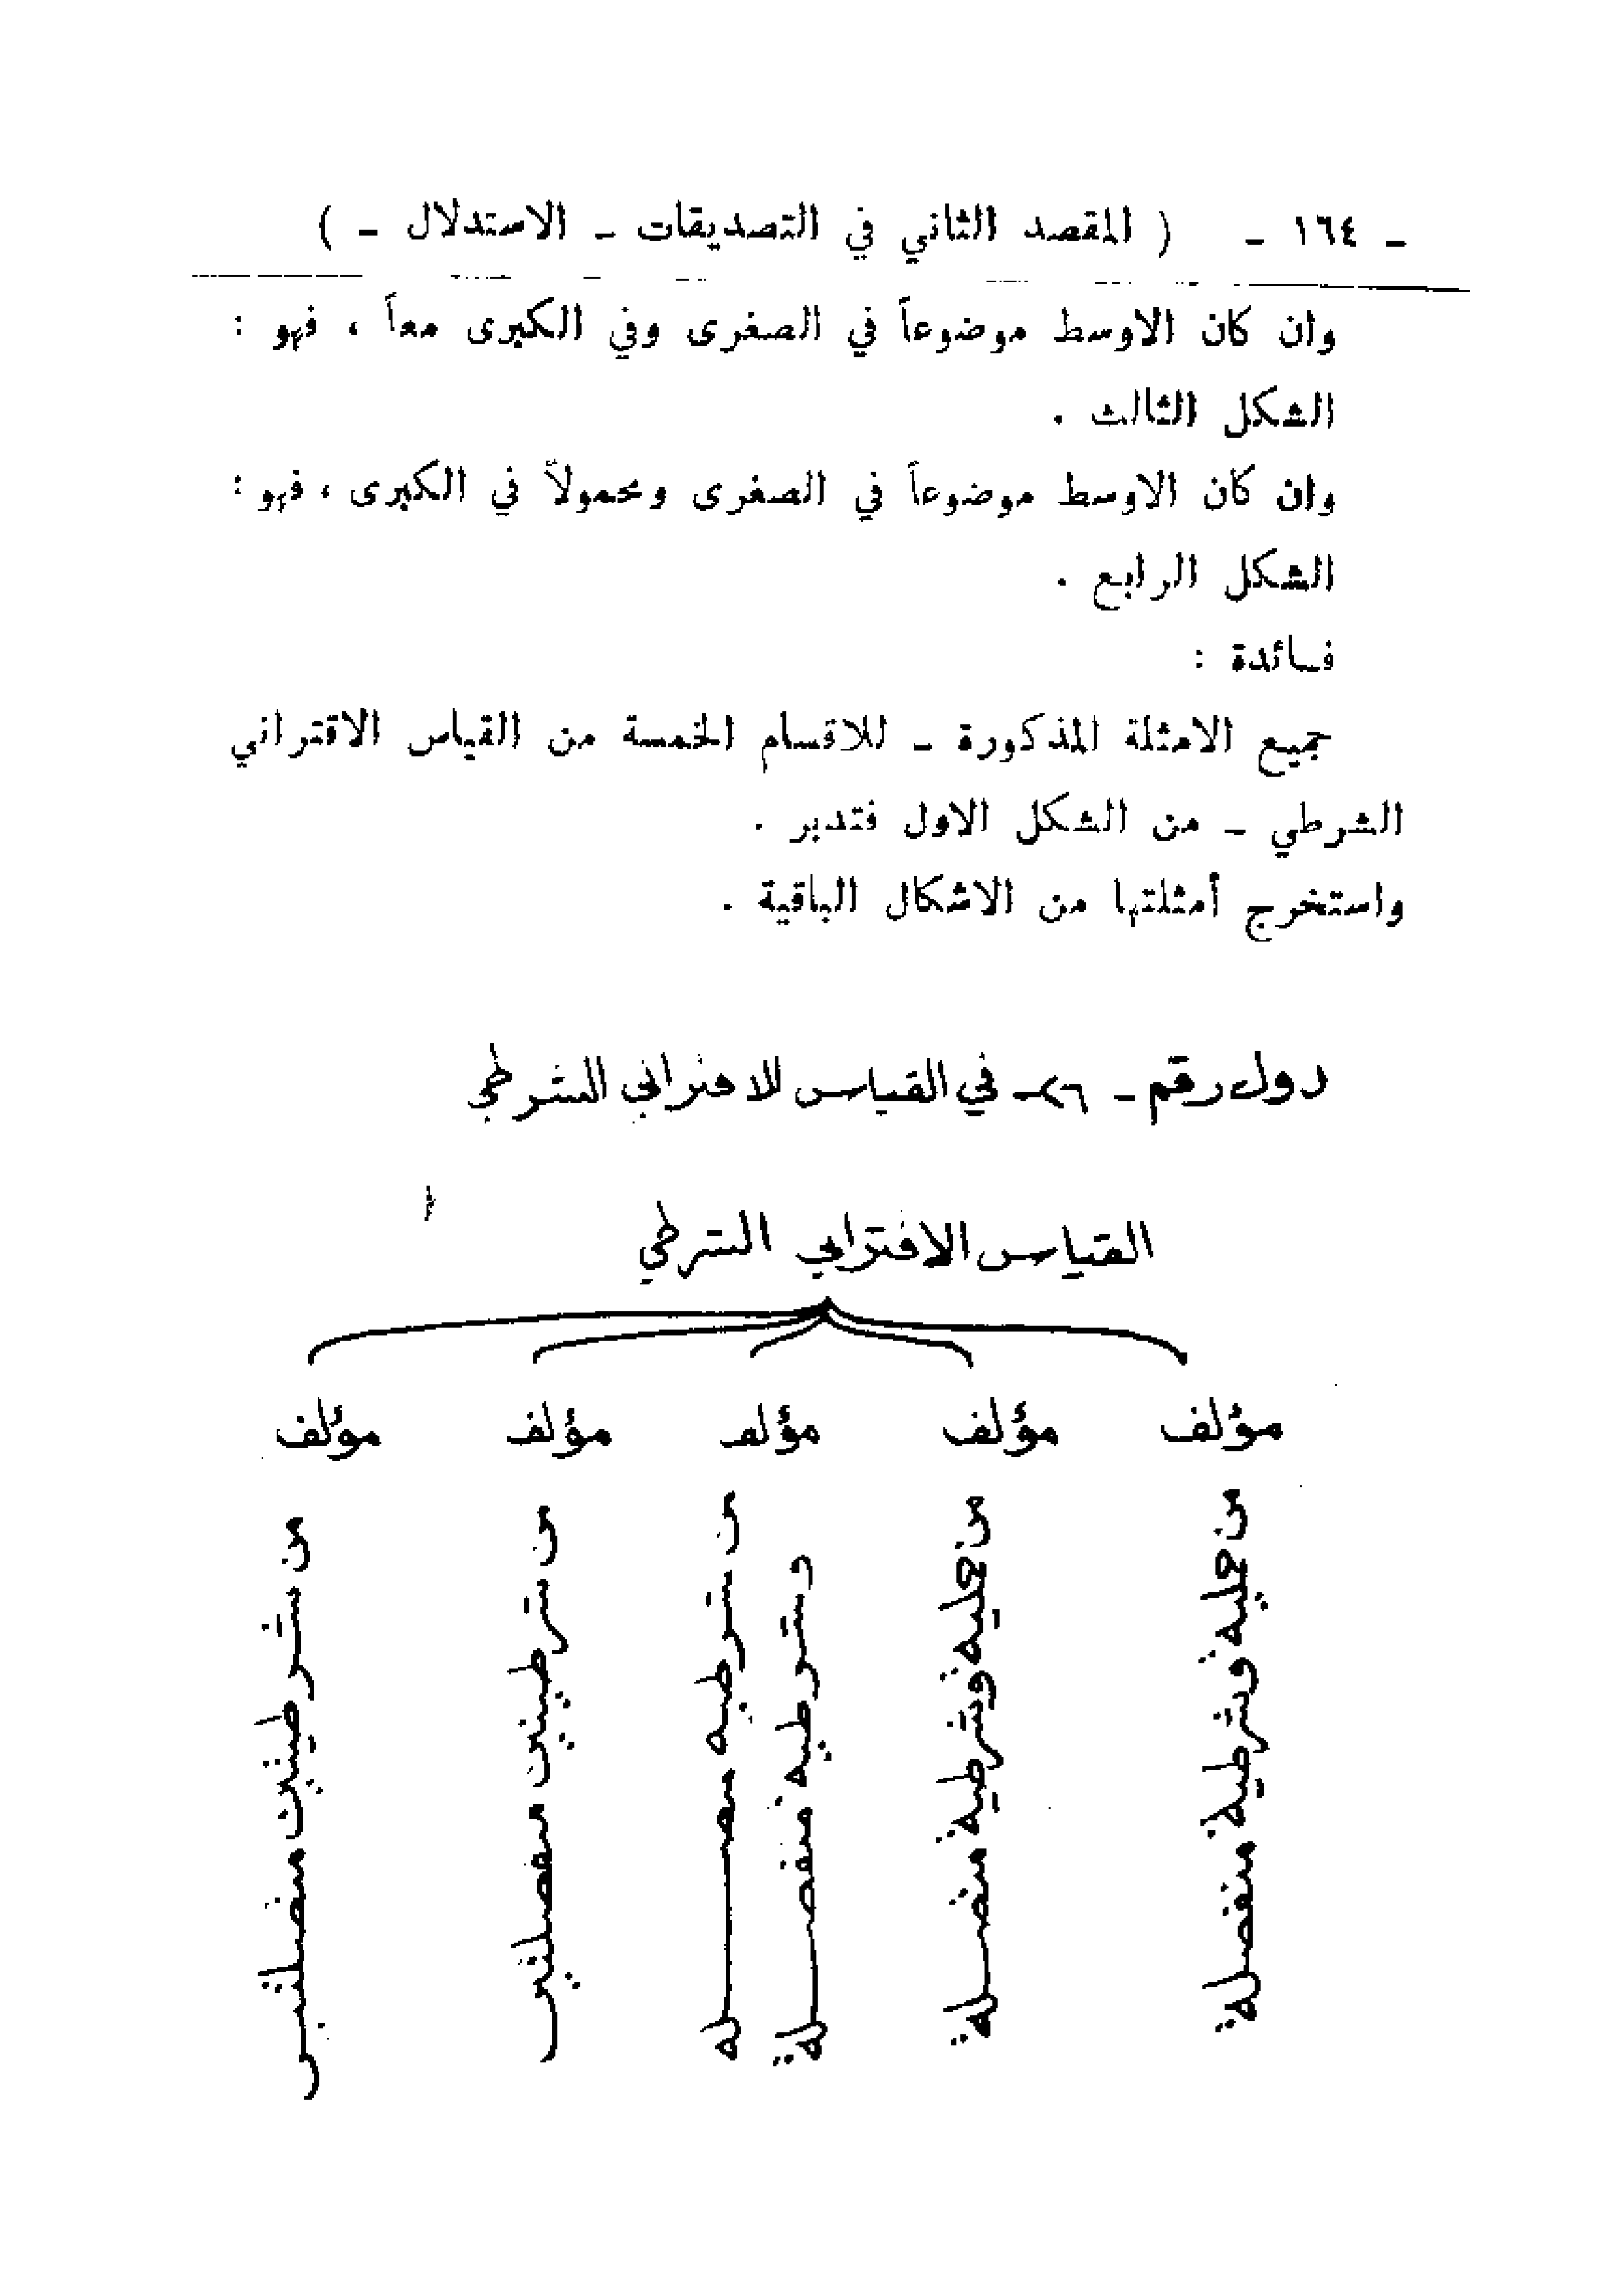 ـ ١٦٤ ـ ( المقصد الثاني في التصديقات ـ الاستدلال ـ )
وان كان الاوسط موضوعاً في الصغرى وفي الكبرى معاً ، فهو :
الشكل الثالث .
وان كان الاوسط موضوعاً في الصغرى ومحمولاً في الكبرى ، فهو :
الشكل الرابع .
فـائدة :
جميع الامثلة المذكورة ـ للاقسام الخمسة من القياس الاقتراني
الشرطي ـ من الشكل الاول فتدبر .
واستخرج أمثلتها من الاشكال الباقية .
دول رقم ـ ٢٦ ـ في القياس الاقتراني الشرطي
القياس الاقتراني الشرطي
مؤلف
من حملية وشرطية منفصلة
مؤلف
من حملية وشرطية متصلة
مؤلف
من شرطيه متصله
وشرطية منفصلة
مؤلف
من شرطيتين منفصلتين
مؤلف
من شرطيتين متصلتين